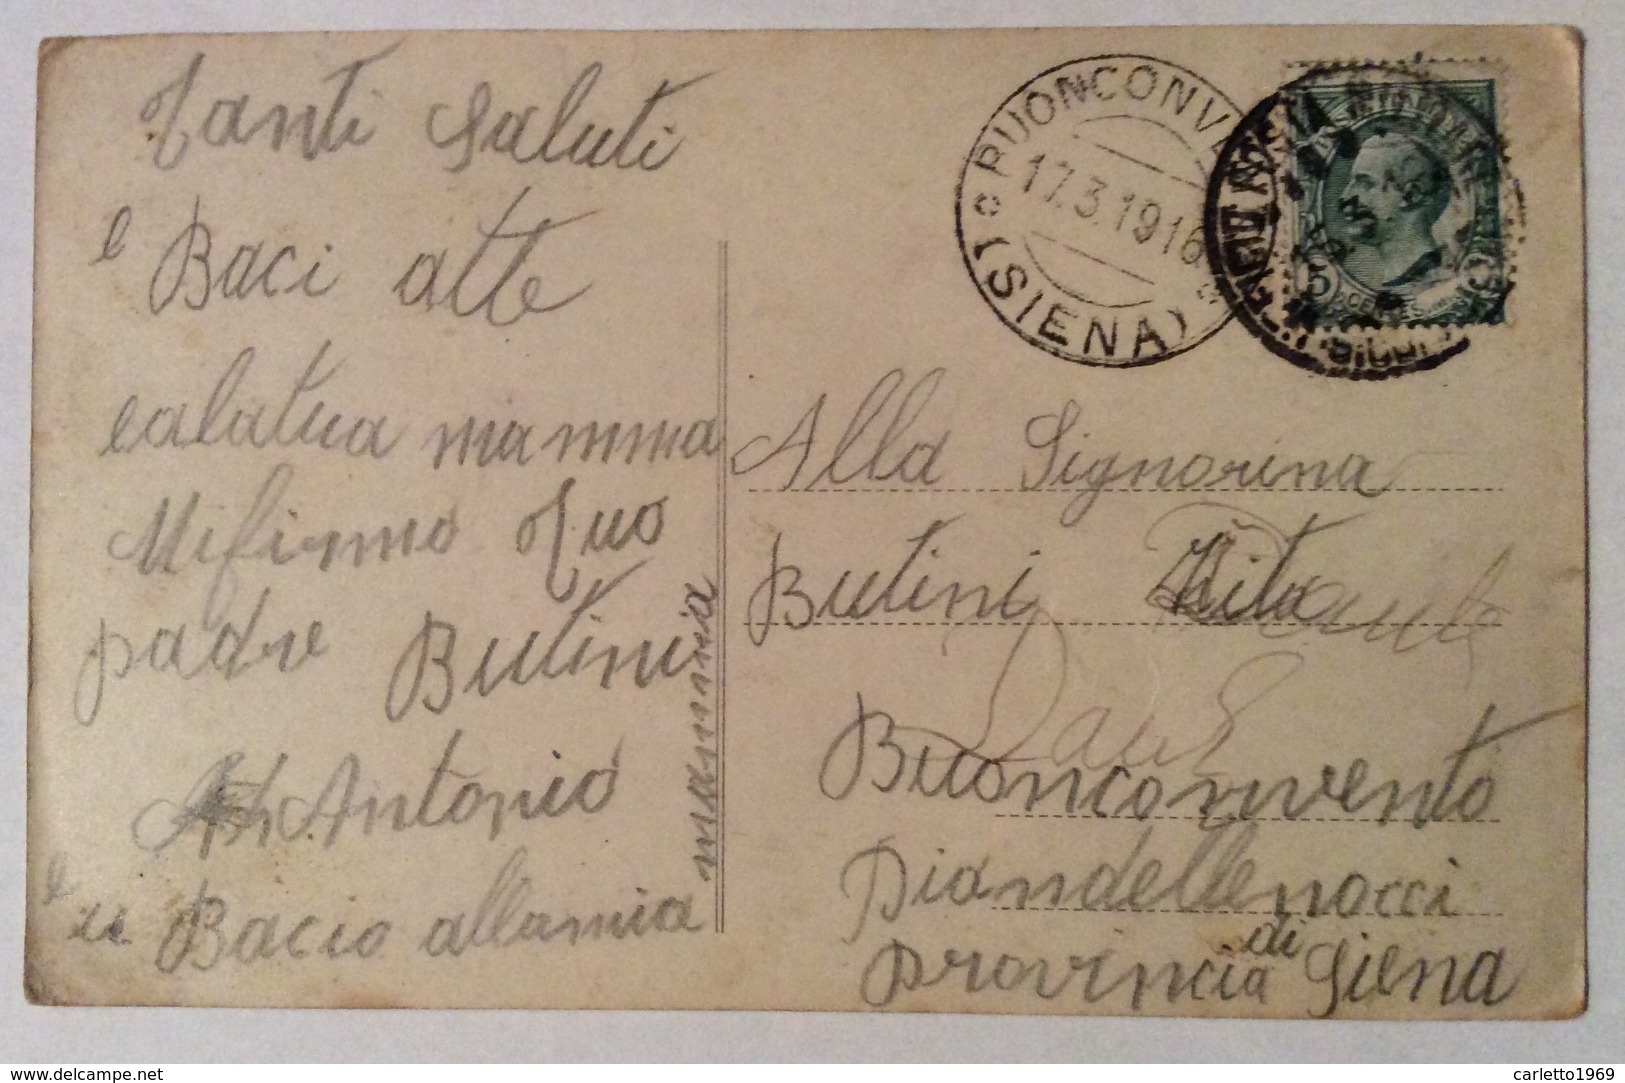 Tanti Saluti
e Baci atte
ealatua mamma
Mifirmo Tuo
padre Butini
Antonio
e
u Bacio allamia
mammia
BUONCONVE
17.3.1916
(SIENA)
5
Alla Signorina
Butini Rita
Buonconvento
Piandellenocci
provincia di Siena
www.delcampe.net
carletto1969